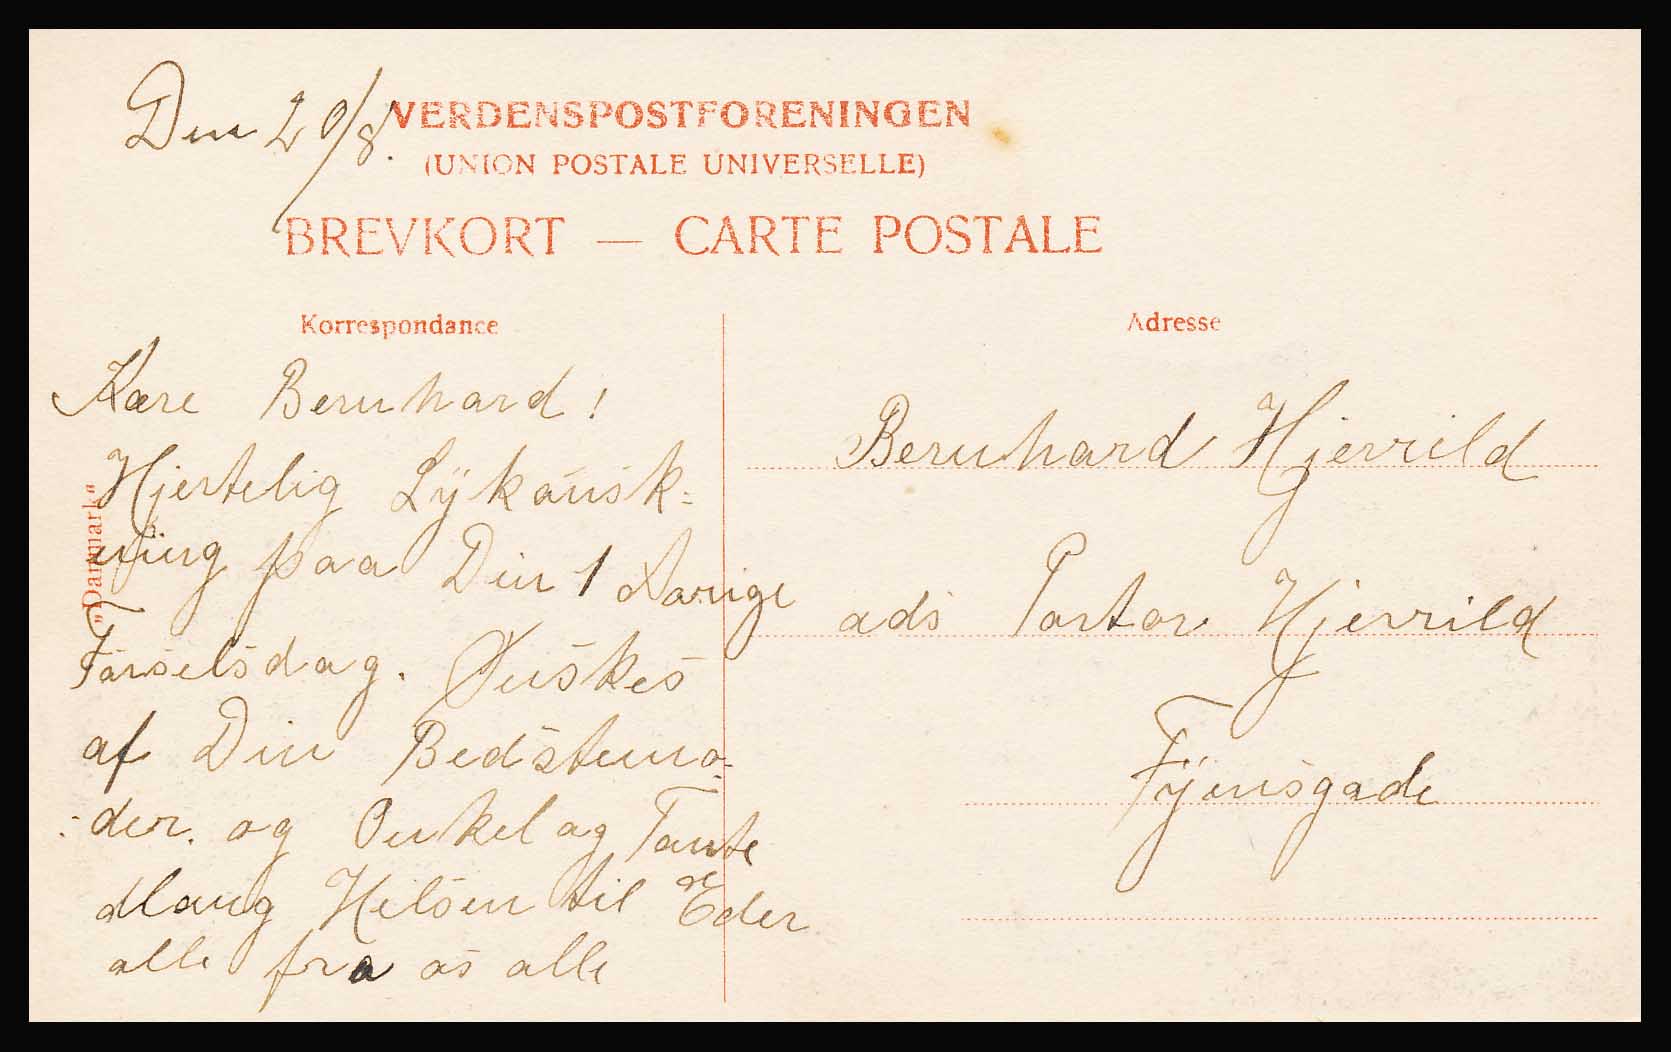 Den 20/8.
VERDENSPOSTFORENINGEN
(UNION POSTALE UNIVERSELLE)
BREVKORT — CARTE POSTALE
Korrespondance
Kære Bernhard!
Hjertelig Lÿkønsk-
ning paa Din 1 Aarige
Førselsdag. Ønskes
af Din Bedstemo-
-der. og Onkel og Tante
Mang Hilsen til Eder
alle fra os alle
„Danmark“
Adresse
Bernhard Hjerrild
ads Pastor Hjerrild
Fÿensgade